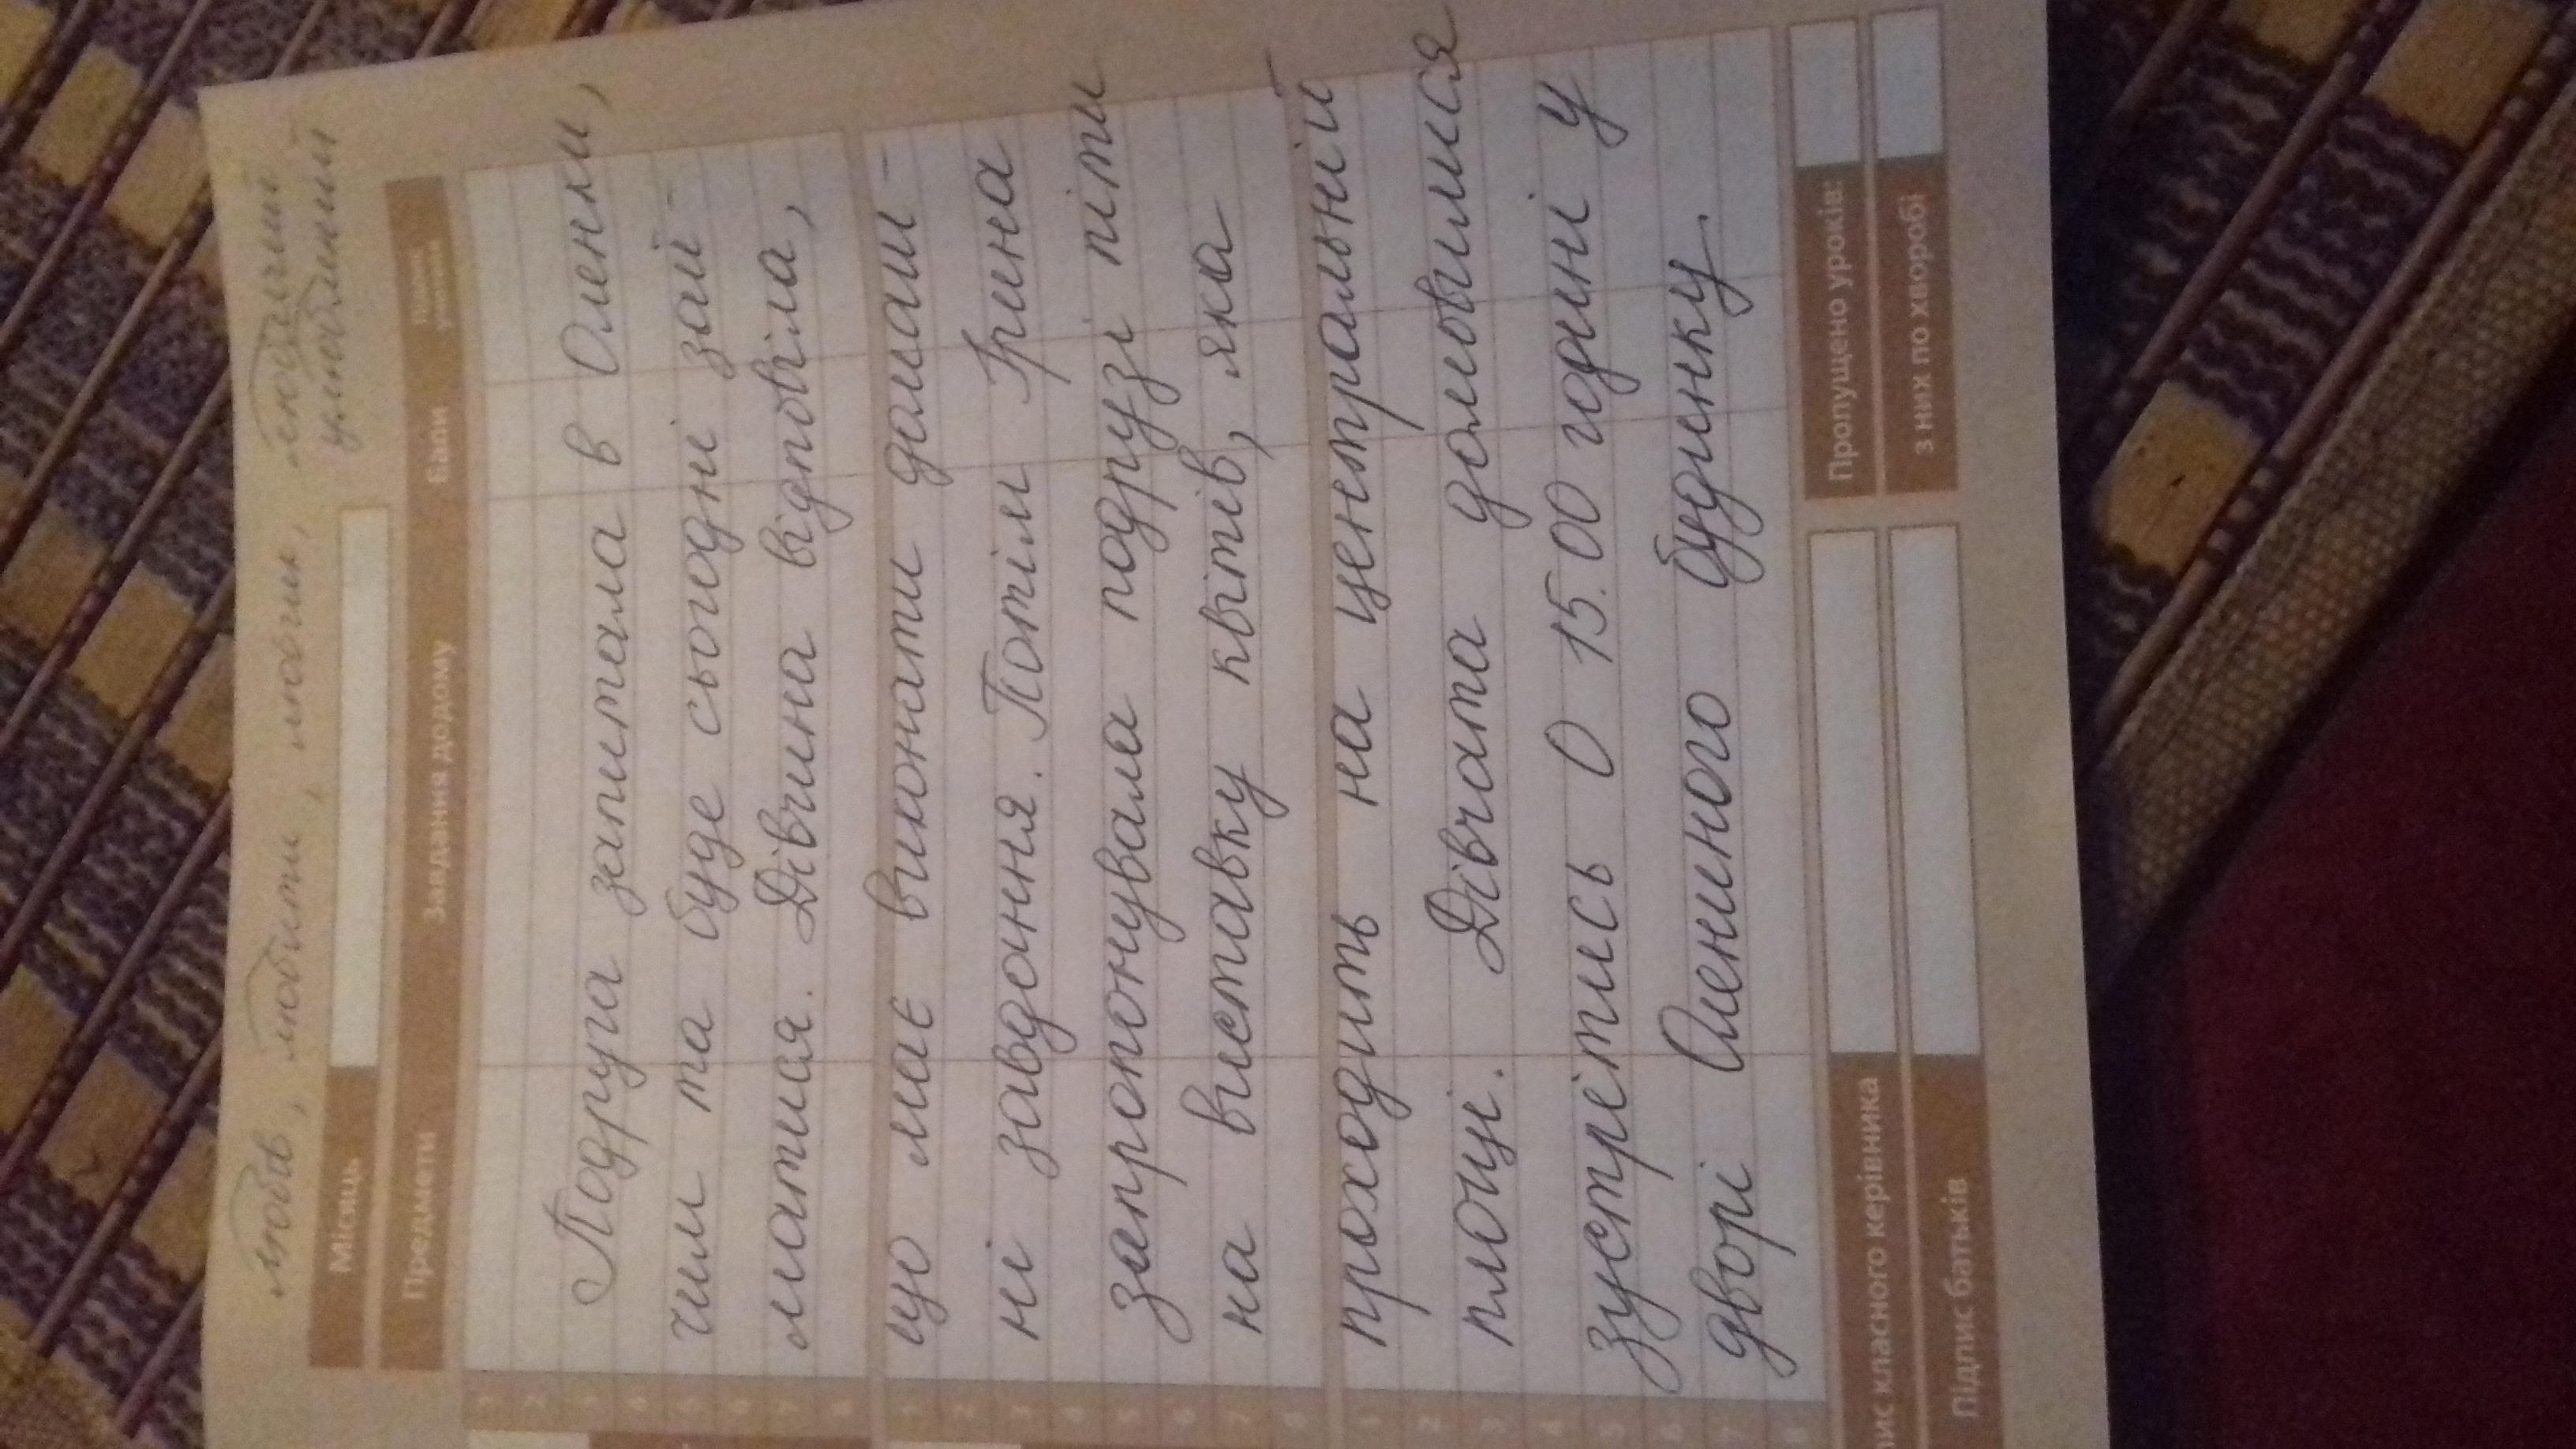 любов, любити, любий, люблячий
улюблений
Місяць
Предмети Завдання додому Бали Підпис учителя
1
2
3
4
5
6
7
8
Подруга запитала в Оленки,
чим та буде сьогодні зай-
матися. Дівчина відповіла,
1
2
3
4
5
6
7
8
що має виконати домаш-
ні завдання. Потім Ірина
запропонувала подрузі піти
на виставку квітів, яка
1
2
3
4
5
6
7
8
проходить на центральній
площі. Дівчата домовилися
зустрітись о 15.00 годині у
дворі Олениного будинку.
Пропущено уроків:
з них по хворобі
ис класного керівника
Підпис батьків